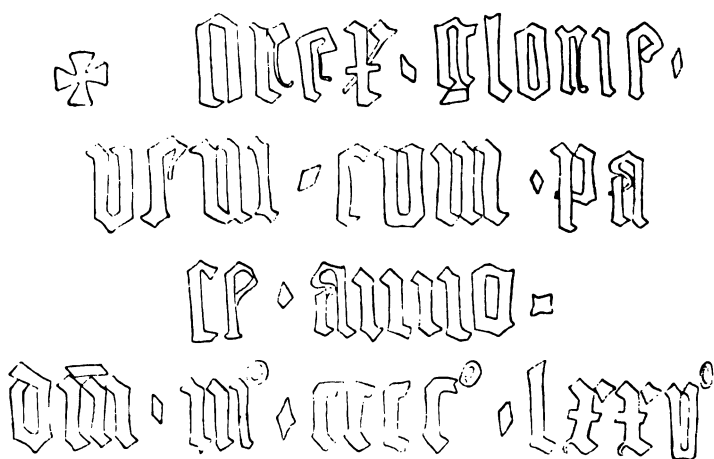 ✠ Orex · glorie ·
veni · cum · pa
ce · anno ·
dm̄ · mº · ccccº · lxxvº